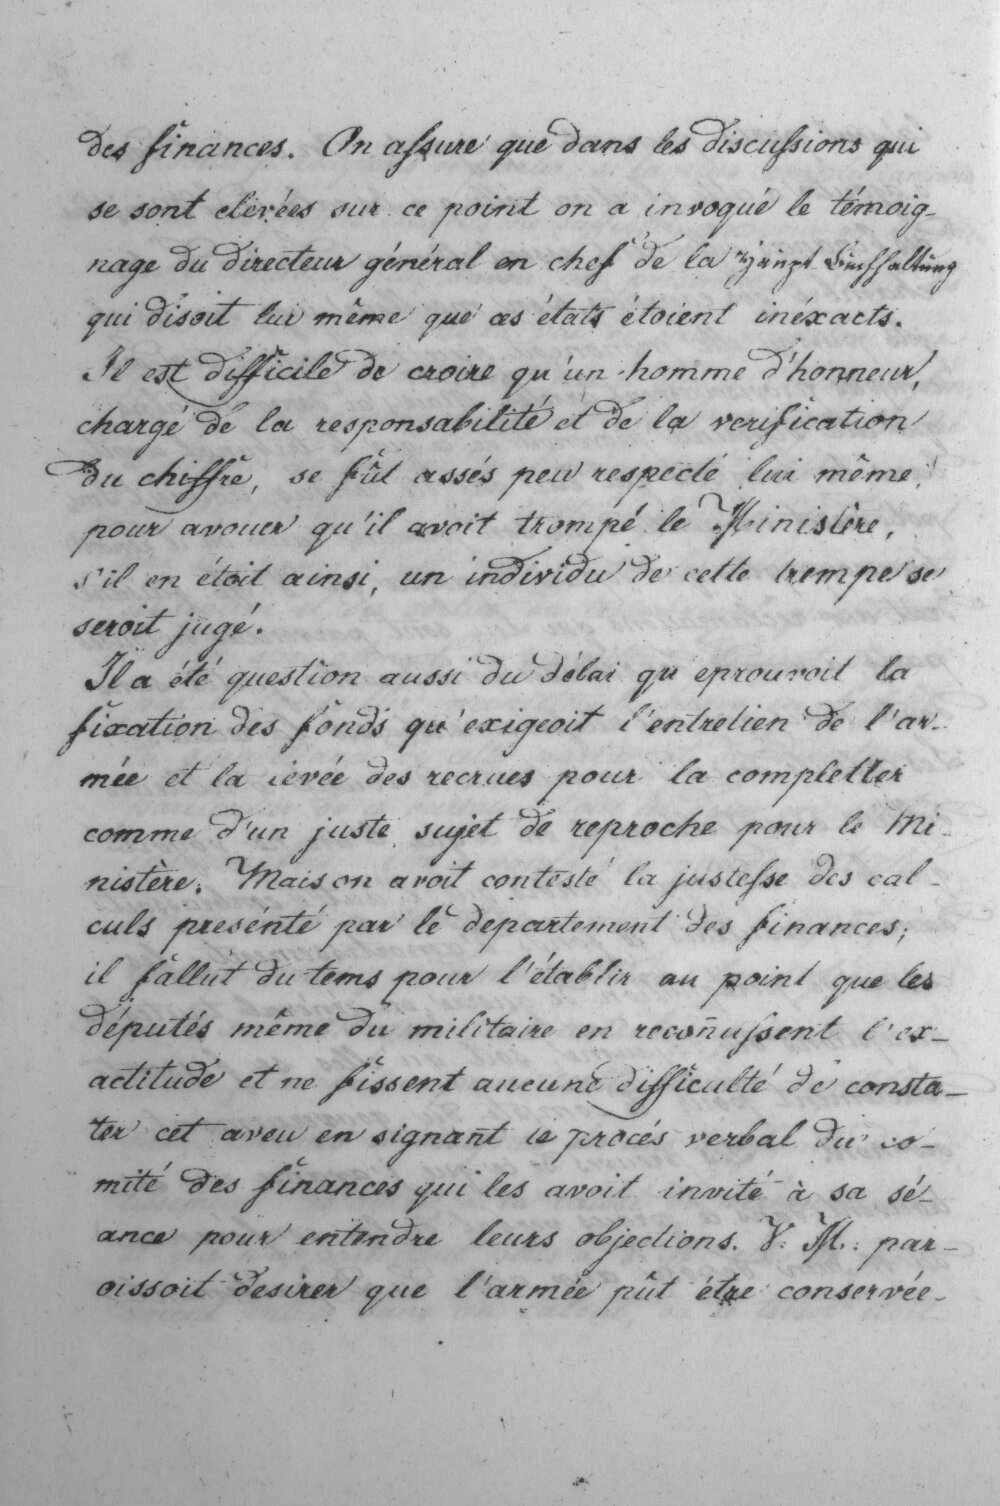 des finances. On assure que dans les discussions qui
se sont elevées sur ce point on a invoqué le témoig-
nage du directeur général en chef de la Haupt Buchhaltung
qui disoit lui même que ces états étoient inéxacts.
Il est difficile de croire qu'un homme d'honneur,
chargé de la responsabilité et de la verification
du chiffre, se fût assés peu respecté lui même,
pour avouer qu'il avoit trompé le Ministère,
s'il en étoit ainsi, un individu de cette trempe se
seroit jugé.
Il a été question aussi du délai qu eprouvoit la
fixation des fonds qu'exigeoit l'entretien de l'ar-
mée et la levée des recrues pour la completter
comme d'un juste sujet de reproche pour le Mi-
nistère. Mais on avoit contesté la justesse des cal-
culs presénté par le departement des finances;
il fallut du tems pour l'établir au point que les
députés même du militaire en recoñussent l'ex-
actitude et ne fissent aucune difficulté de consta-
ter cet aveu en signant le procés verbal du co-
mité des finances qui les avoit invité à sa sé-
ance pour entendre leurs objections. V. M.: par-
oissoit desirer que l'armée pût étre conservée-